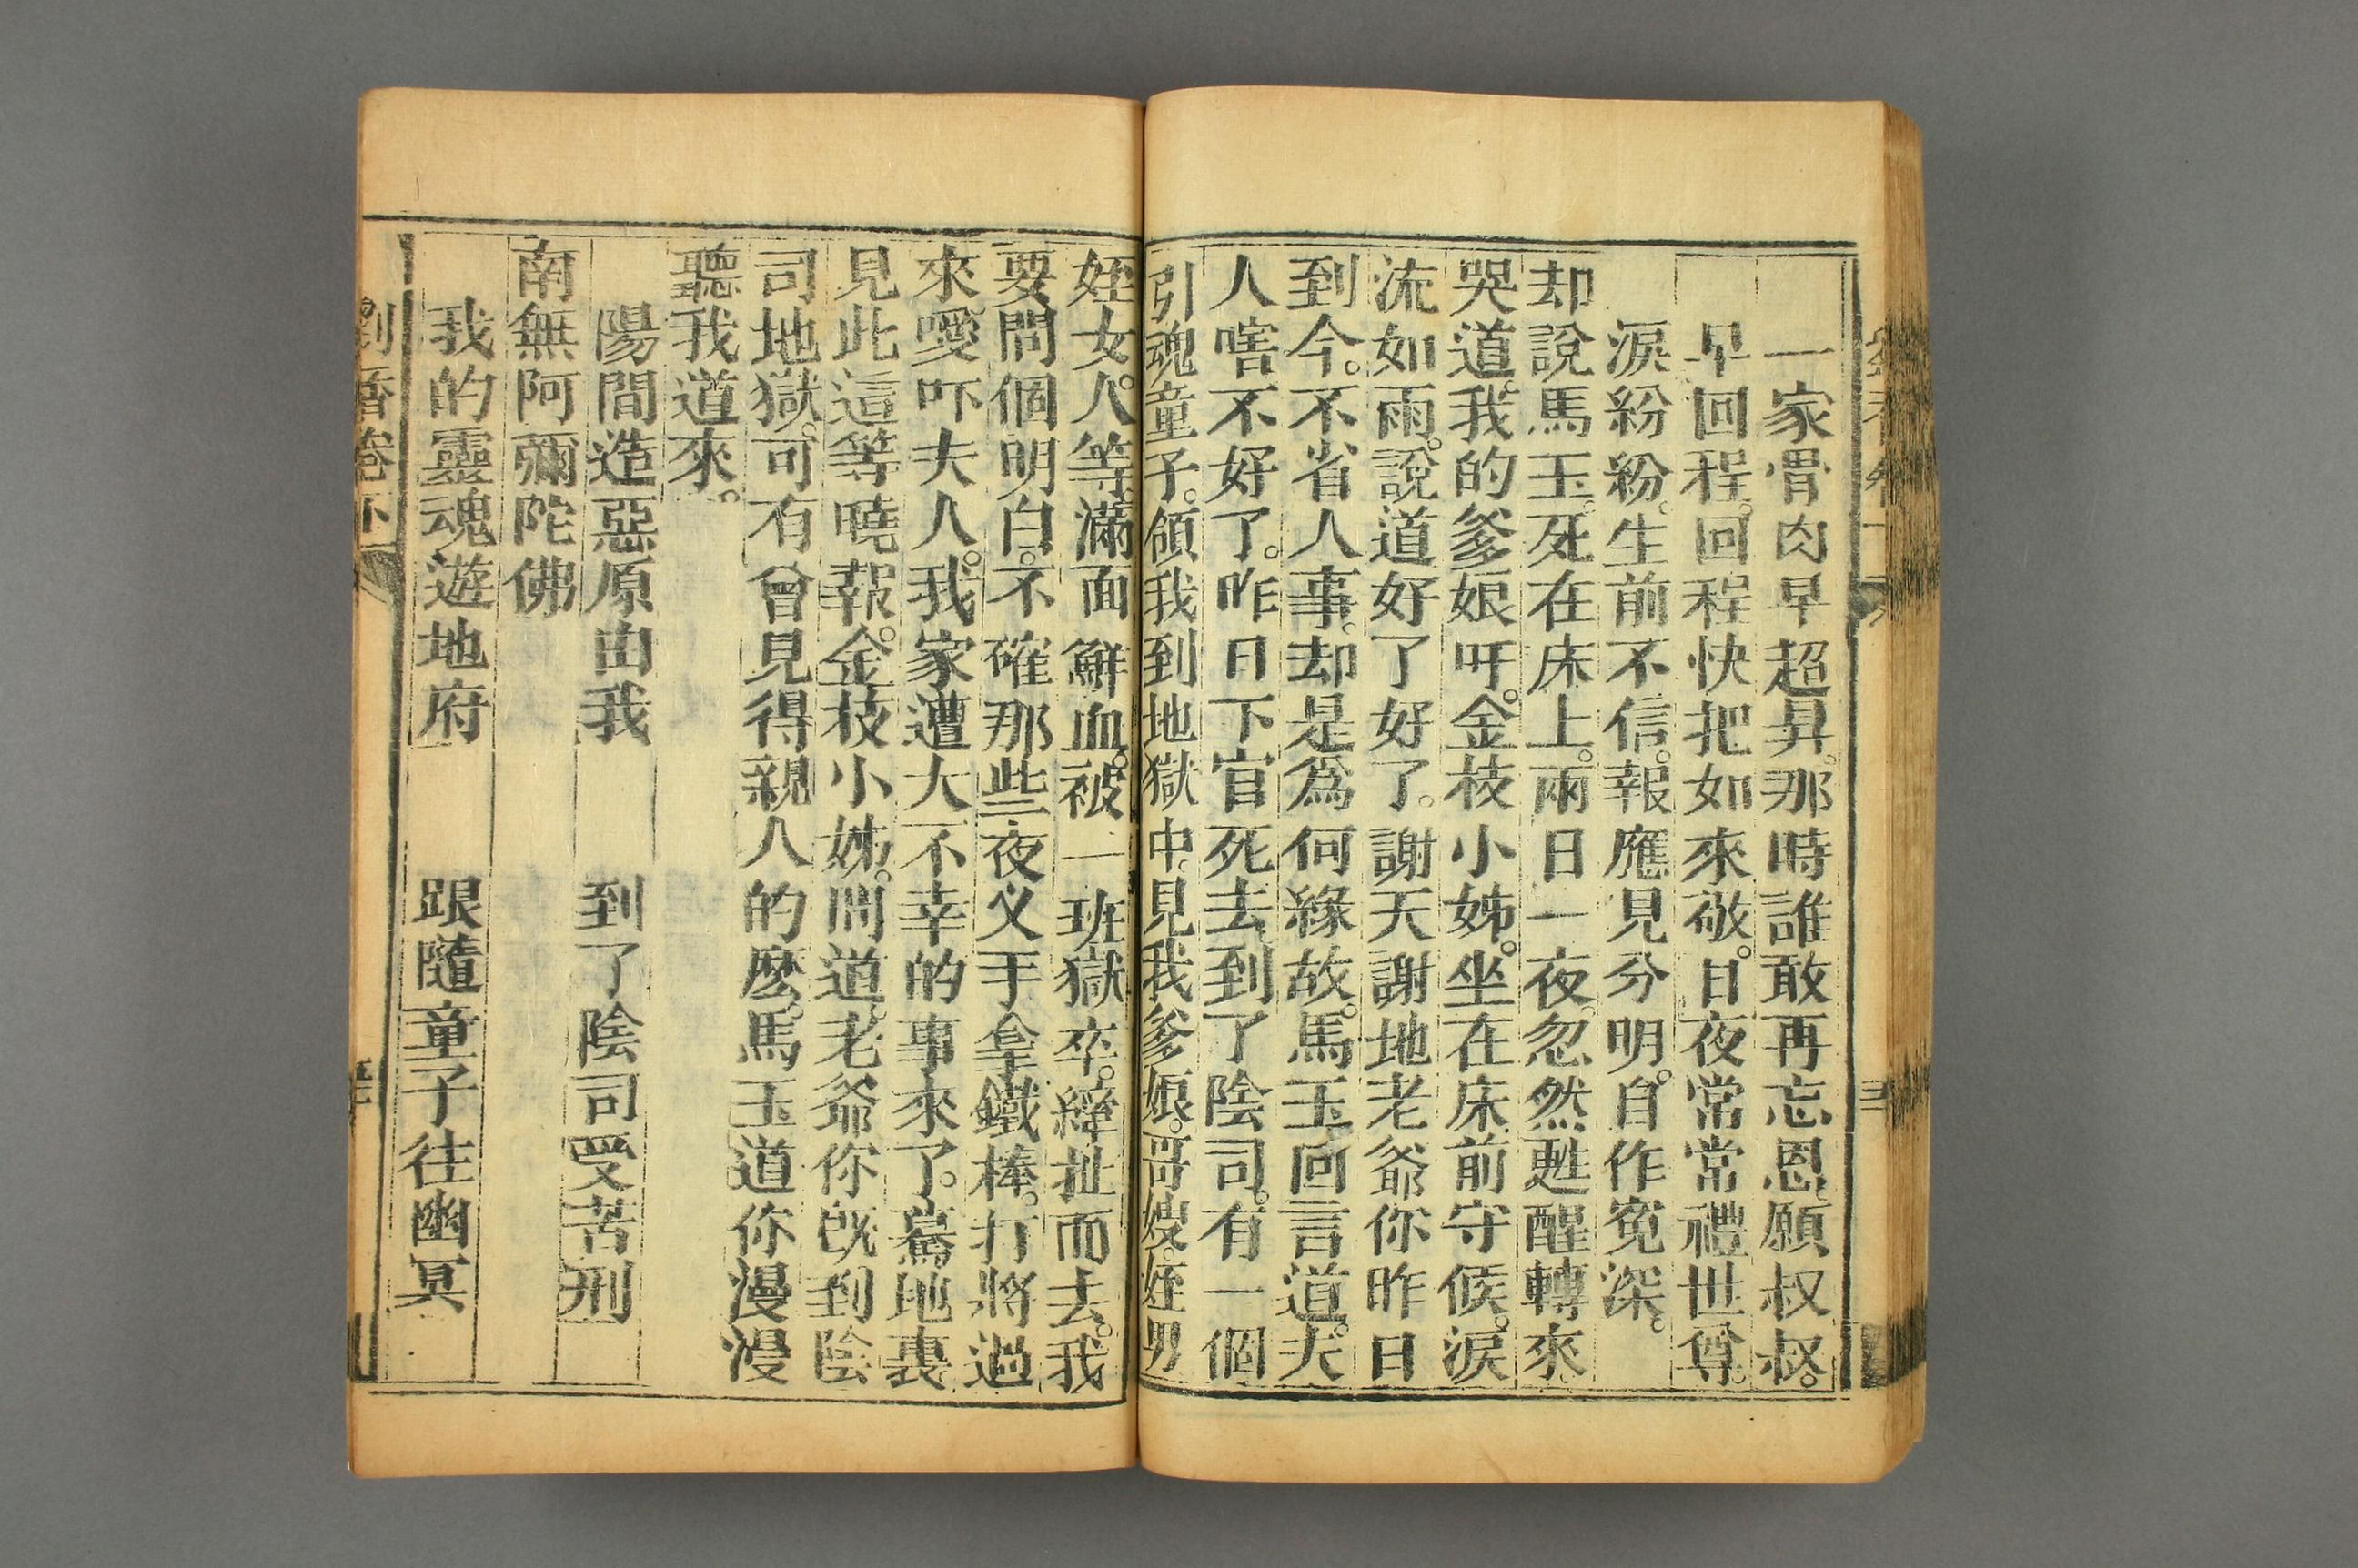 一家骨肉早超昇。那時誰敢再忘恩。願叔叔。
早回程。回程快把如來敬。日夜常常禮世尊。
淚紛紛。生前不信。報應見分明。自作寃深。
却說馬玉。死在床上。兩日一夜。忽然甦醒轉來
哭道。我的爹娘吁。金枝小姊。坐在床前守候。淚
流如雨。說道好了好了。謝天謝地老爺你昨日
到今。不省人事。却是爲何緣故。馬玉回言道。夫
人嗐不好了。昨日下官死去到了陰司。有一個
引魂童子。領我到地獄中。見我爹娘。哥嫂。姪男
姪女人等。滿面鮮血。被一班獄卒。縴扯而去。我
要問個明白。不確那些夜义手拿鐵棒。打將過
來噯吓夫人。我家遭大不幸的事來了。驀地裏
見此這等曉報。金枝小姊。問道。老爺你旣到陰
司地獄。可有曾見得親人的麽。馬玉道你漫漫
聽我道來。
陽間造惡原由我　到了陰司受苦刑
南無阿彌陀佛
我的靈魂遊地府　跟隨童子往幽冥
劉香卷下